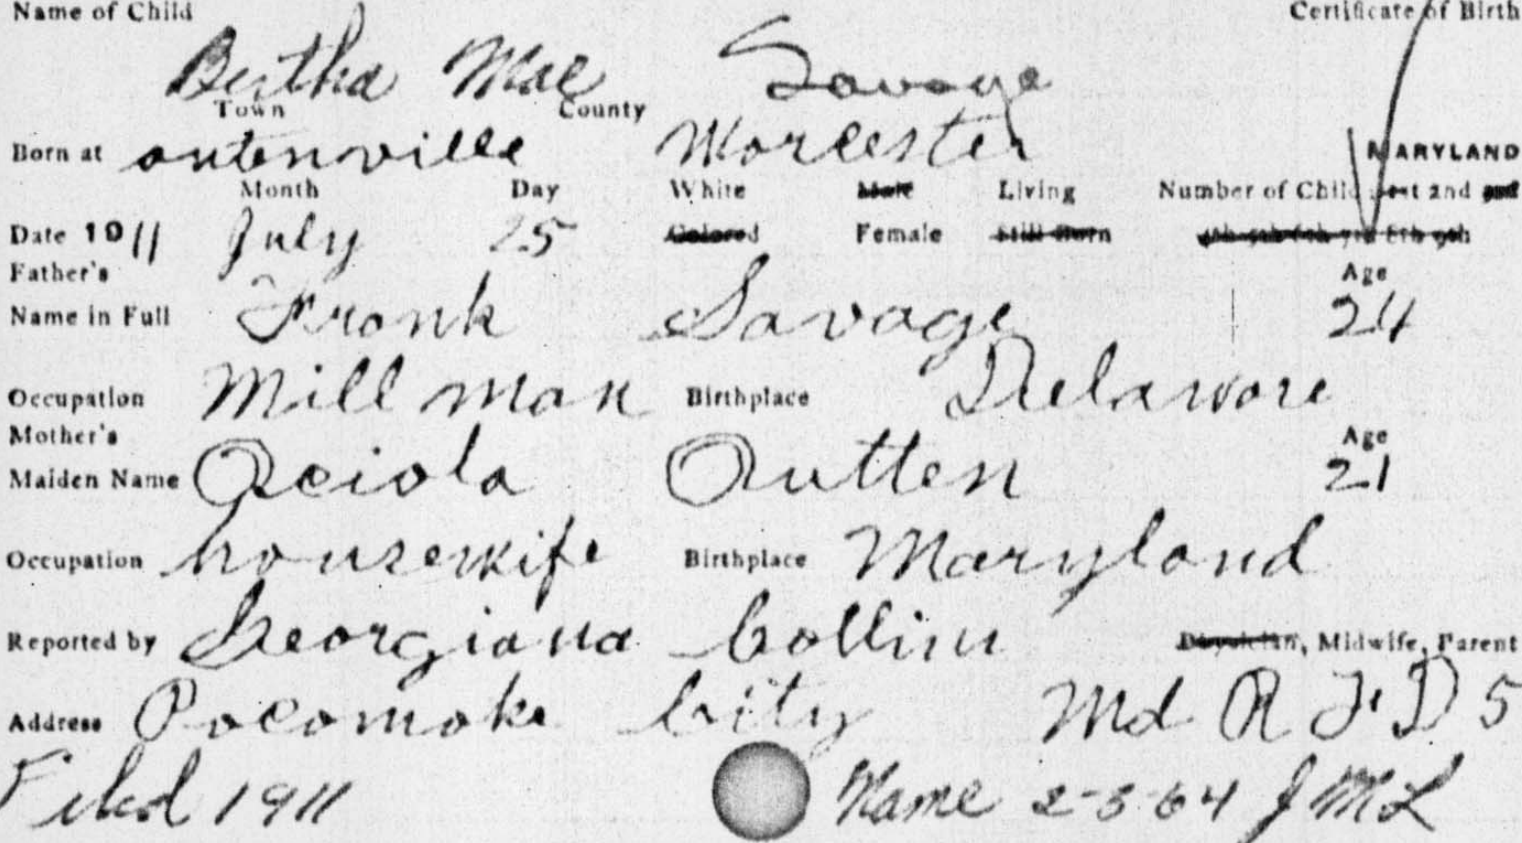 Name of Child Certificate of Birth
Bertha Mae Savage
Town County
Born at outenville Worcester MARYLAND
Month Day White Male Living Number of Child 1st 2nd
Date 1911 July 25 Colored Female Still Born 4th 5th 6th 7th 8th 9th
Father's Age
Name in Full Frank Savage 24
Occupation Mill man Birthplace Delaware
Mother's Age
Maiden Name Reiola Outten 21
Occupation housewife Birthplace Maryland
Reported by Georgiana Collins Physician, Midwife, Parent
Address Pocomoke City Md R F D 5
Filed 1911 Name 2-3-64 J M L